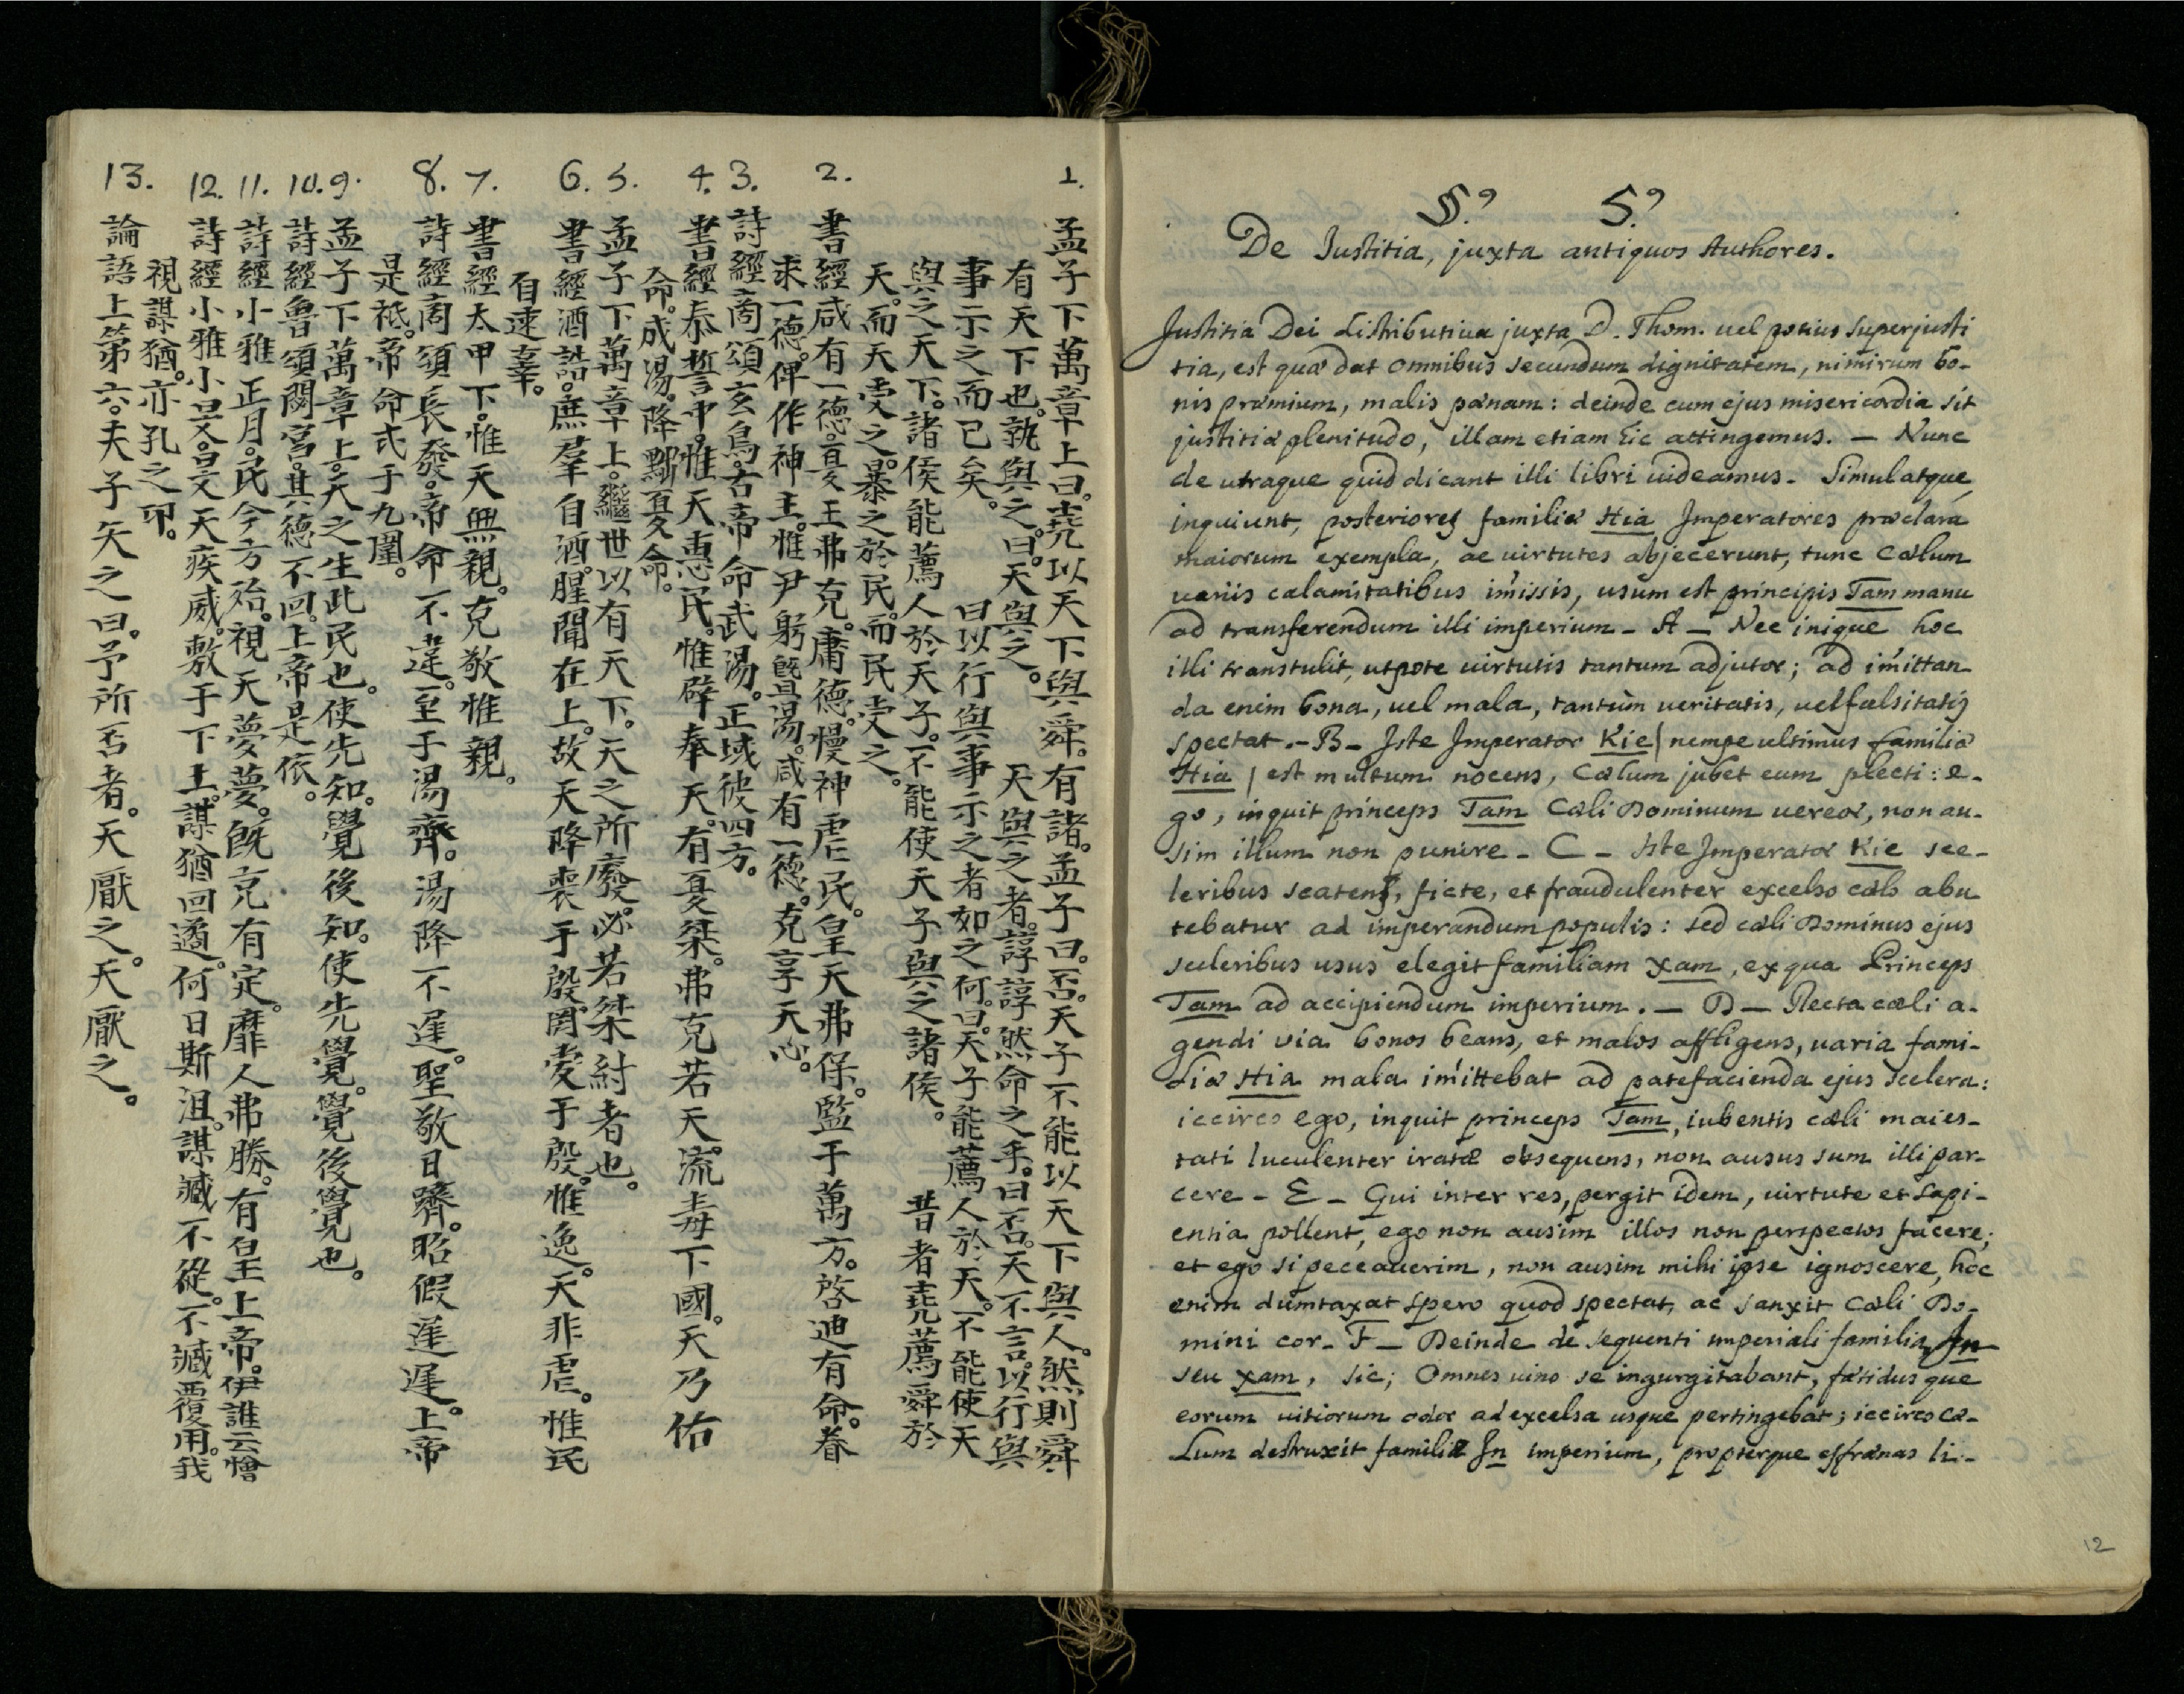 1. 孟子下萬章上曰。堯以天下與舜。有諸。孟子曰。否。天子不能以天下與人。然則舜
有天下也。孰與之。曰。天與之。 天與之者。諄諄然命之乎。曰否。天不言。以行與
事示之而已矣。 曰以行與事示之者如之何。曰。天子能薦人於天。不能使天
與之天下。諸侯能薦人於天子。不能使天子與之諸侯。 昔者堯薦舜於
天。而天受之。暴之於民。而民受之。
2. 書經咸有一德。夏王弗克。庸德。慢神虐民。皇天弗保。監于萬方。啓迪有命。眷
求一德。俾作神主。惟尹躬曁湯。咸有一德。克享天心。
3. 詩經商頌玄鳥。古帝命武湯。正域彼四方。
4. 書經泰誓中。惟天惠民。惟辟奉天。有夏桀。弗克若天。流毒下國。天乃佑
命。成湯。降黜夏命。
5. 孟子下萬章上。繼世以有天下。天之所廢。必若桀紂者也。
6. 書經酒誥。庶羣自酒。腥聞在上。故天降喪于殷。罔愛于殷。惟逸。天非虐。惟民
自速辜。
7. 書經太甲下。惟天無親。克敬惟親。
8. 詩經商頌長發。帝命不違。至于湯齊。湯降不遲。聖敬日躋。昭假遲遲。上帝
是祗。帝命式于九圍。
9. 孟子下萬章上。天之生此民也。使先知。覺後知。使先覺。覺後覺也。
10. 詩經魯頌閟宮。其德不回。上帝是依。
11. 詩經小雅正月。民今方殆。視天夢夢。旣克有定。靡人弗勝。有皇上帝。伊誰云憎
12. 詩經小雅小旻。旻天疾威。敷于下土。謀猶回遹。何日斯沮。謀臧不從。不臧覆用。我
視謀猶。亦孔之卭。
13. 論語上第六。夫子矢之曰。予所否者。天厭之。天厭之。
§.º 5.º
De Justitia, juxta antiquos Authores.
Justitia Dei distributiua juxta D. Thom. uel potius superjusti
tia, est quæ dat omnibus secundum dignitatem, nimirum bo-
nis præmium, malis pænam: deinde cum ejus misericordia sit
justitiæ plenitudo, illam etiam hic attingemus. — Nunc
de utraque quid dicant illi libri uideamus. Simulatque,
inquiunt, posteriores familiæ Hia Imperatores præclara
maiorum exempla, ac uirtutes abjecerunt, tunc Cælum
uariis calamitatibus im̃issis, usum est principis Tam manu
ad transferendum illi imperium _ A _ Nec inique hoc
illi transtulit, utpote uirtutis tantum adjutor; ad im̃ittan
da enim bona, uel mala, tantùm ueritatis, uel falsitatis
spectat. _ B _ Iste Imperator Kie / nempe ultimus familiæ
Hia / est multum nocens, Cælum jubet eum plecti: e-
go, inquit princeps Tam Cæli Dominum uereor, non au-
sim illum non punire _ C _ Iste Imperator Kie sce-
leribus scatens, ficte, et fraudulenter excelso cælo abu
tebatur ad imperandum populis: sed cæli Dominus ejus
sceleribus usus elegit familiam Xam, ex qua Princeps
Tam ad accipiendum imperium. — D — Recta cæli a-
gendi via bonos beans, et malos affligens, uaria fami-
liæ Hia mala im̃ittebat ad patefacienda ejus scelera:
iccirco ego, inquit princeps Tam, iubentis cæli maies-
tati luculenter iratæ obsequens, non ausus sum illi par-
cere _ E _ Qui inter res, pergit idem, uirtute et sapi-
entia pollent, ego non ausim illos non perspectos facere;
et ego si peccauerim, non ausim mihi ipse ignoscere, hoc
enim dumtaxat spero quod spectat, ac sanxit Cæli Do-
mini cor _ F _ Deinde de sequenti imperiali familia In
seu Xam, sic; Omnes uino se ingurgitabant, fætidusque
eorum uitiorum odor ad excelsa usque pertingebat; iccirco cæ-
lum destruxit familiæ In imperium, propterque effrænas li-
12